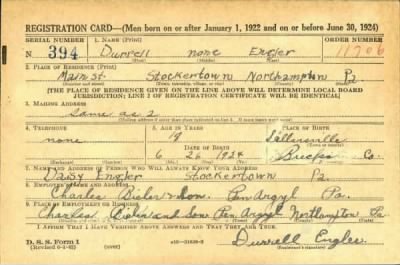 REGISTRATION CARD—(Men born on or after January 1, 1922 and on or before June 30, 1924)
SERIAL NUMBER 1. NAME (Print) ORDER NUMBER
N 394 Durrell none Engler 11706
2. PLACE OF RESIDENCE (Print)
Main st. Stockertown Northampton Pa
[THE PLACE OF RESIDENCE GIVEN ON THE LINE ABOVE WILL DETERMINE LOCAL BOARD
JURISDICTION; LINE 2 OF REGISTRATION CERTIFICATE WILL BE IDENTICAL]
3. MAILING ADDRESS
Same as 2
4. TELEPHONE 5. AGE IN YEARS
none 19 Sellersville
DATE OF BIRTH
6 26 1924 Co.
7. NAME AND ADDRESS OF PERSON WHO WILL ALWAYS KNOW YOUR ADDRESS
Daisy Engler Stockertown Pa.
8. EMPLOYER'S NAME AND ADDRESS
Charles & Son. Pen Argyl Pa.
9. PLACE OF EMPLOYMENT OR BUSINESS
Charles and Son Pen Argyl Northampton Pa
I AFFIRM THAT I HAVE VERIFIED ABOVE ANSWERS AND THAT THEY ARE TRUE.
D. S. S. Form 1 Durrell Engler